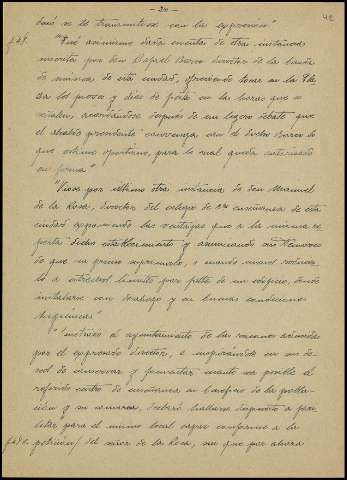 - 211 -
42
se le transmitirá con la expresión"
"Fué asimismo dada cuenta de otra instancia
suscrita por don Rafael director de la banda
de música de esta ciudad, ofreciendo tocar en la Pla
za los jueves y días de fiesta en las horas que se
señalen, acordándose después de un ligero debate que
el alcalde presidente convenga con el dicho lo
que estime oportuno, para lo cual queda autorizado
en forma"
"Vióse por último otra instancia de don Manuel
de la Rosa, director del colegio de 2ª enseñanza de esta
ciudad exponiendo las ventajas que a la misma re
porta dicho establecimiento y anunciando
de que es preciso suprimirlo, o cuando menos reducir
lo a estrechos límites por falta de un edificio, donde
instalarse con desahogo y en buenas condiciones
higiénicas"
el ayuntamiento de las razones aducidas
por el expresado director, e inspirándose en su de
seo de conservar y fomentar cuanto sea posible el
referido centro de enseñanza en beneficio de la pobla-
ción y su comarca, declaró hallarse dispuesto a faci
litar para el mismo local capaz conforme a la
petición/ del señor de la Rosa, sin que por ahora